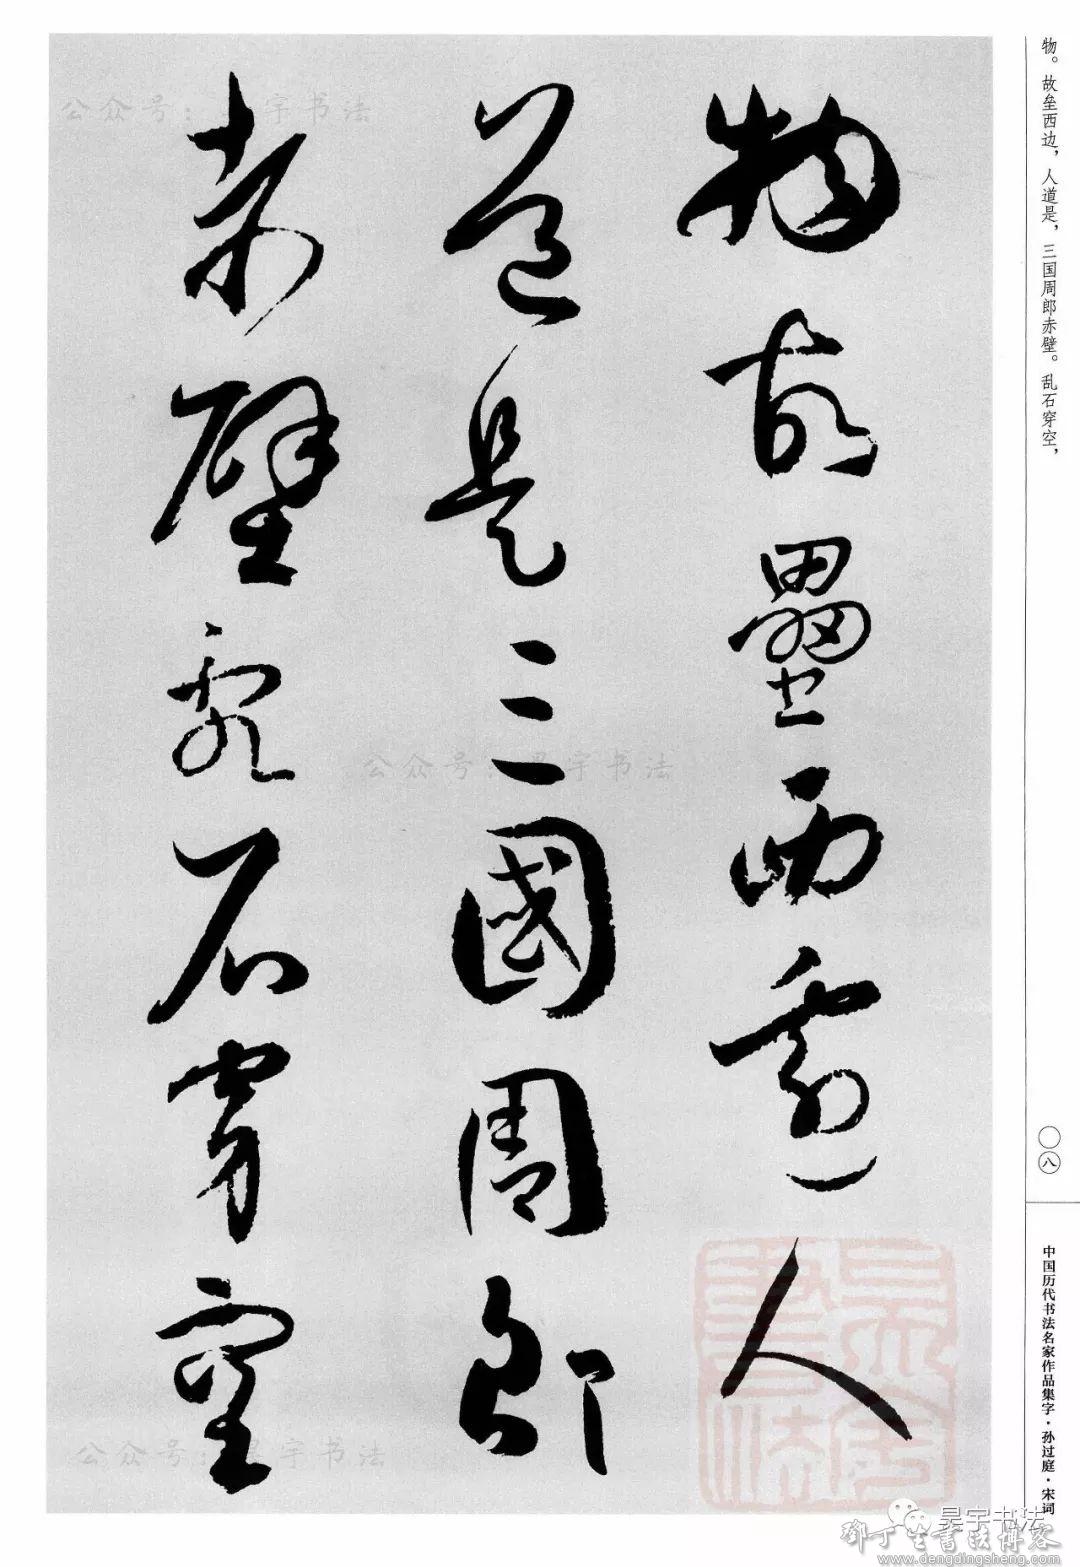 物故壘西邊人
道是三國周郎
赤壁亂石穿空
物。故垒西边，人道是，三国周郎赤壁。乱石穿空，
〇八
中国历代书法名家作品集字·孙过庭·宋词
公众号：昊宇书法
公众号：昊宇书法
公众号：昊宇书法
昊宇书法
邓丁生书法博客
www.dengdingsheng.com